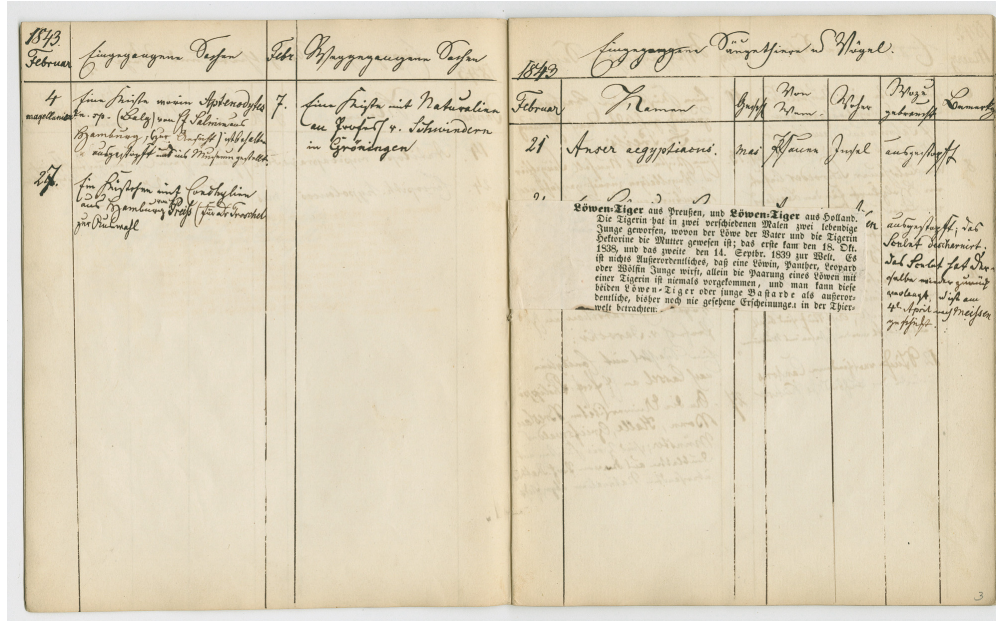 1843.
Februar
Eingegangene Sachen
Febr
Weggegangene Sachen
4
magellanica
Eine Kiste worin Aptenodytes
n. sp. (Balg) von H Salmin aus
Hamburg, zur Ansicht
ausgestopft und ins Museum gestellt.
7.
Eine Kiste mit Naturalien
an Profess v. Schwindern
in Gröningen
27.
Ein Kistchen mit Conchylien
aus Hamburg von Preiss (für Dr Troschel
zur Auswahl
Eingegangene Säugethiere u Vögel.
1843
Februar
Namen
Geschl
Von
Wem.
Woher
Wozu
gebraucht
Bemerk
21
Anser aegyptiacus.
mas
Pfauen
Insel
ausgestopft
Löwen-Tiger aus Preußen, und Löwen-Tiger aus Holland.
Die Tigerin hat in zwei verschiedenen Malen zwei lebendige
Junge geworfen, wovon der Löwe der Vater und die Tigerin
Hektorine die Mutter gewesen ist; das erste kam den 18. Okt.
1838, und das zweite den 14. Septbr. 1839 zur Welt. Es
ist nichts Außerordentliches, daß eine Löwin, Panther, Leopard
oder Wölfin Junge wirft, allein die Paarung eines Löwen mit
einer Tigerin ist niemals vorgekommen, und man kann diese
beiden Löwen-Tiger oder junge Bastarde als außeror-
dentliche, bisher noch nie gesehene Erscheinungen in der Thier-
welt betrachten.
ausgestopft; das
Skelet
das Skelet hat der-
selbe wieder zurück
verlangt. d ist am
4t April nach Meissen
geschickt.
3